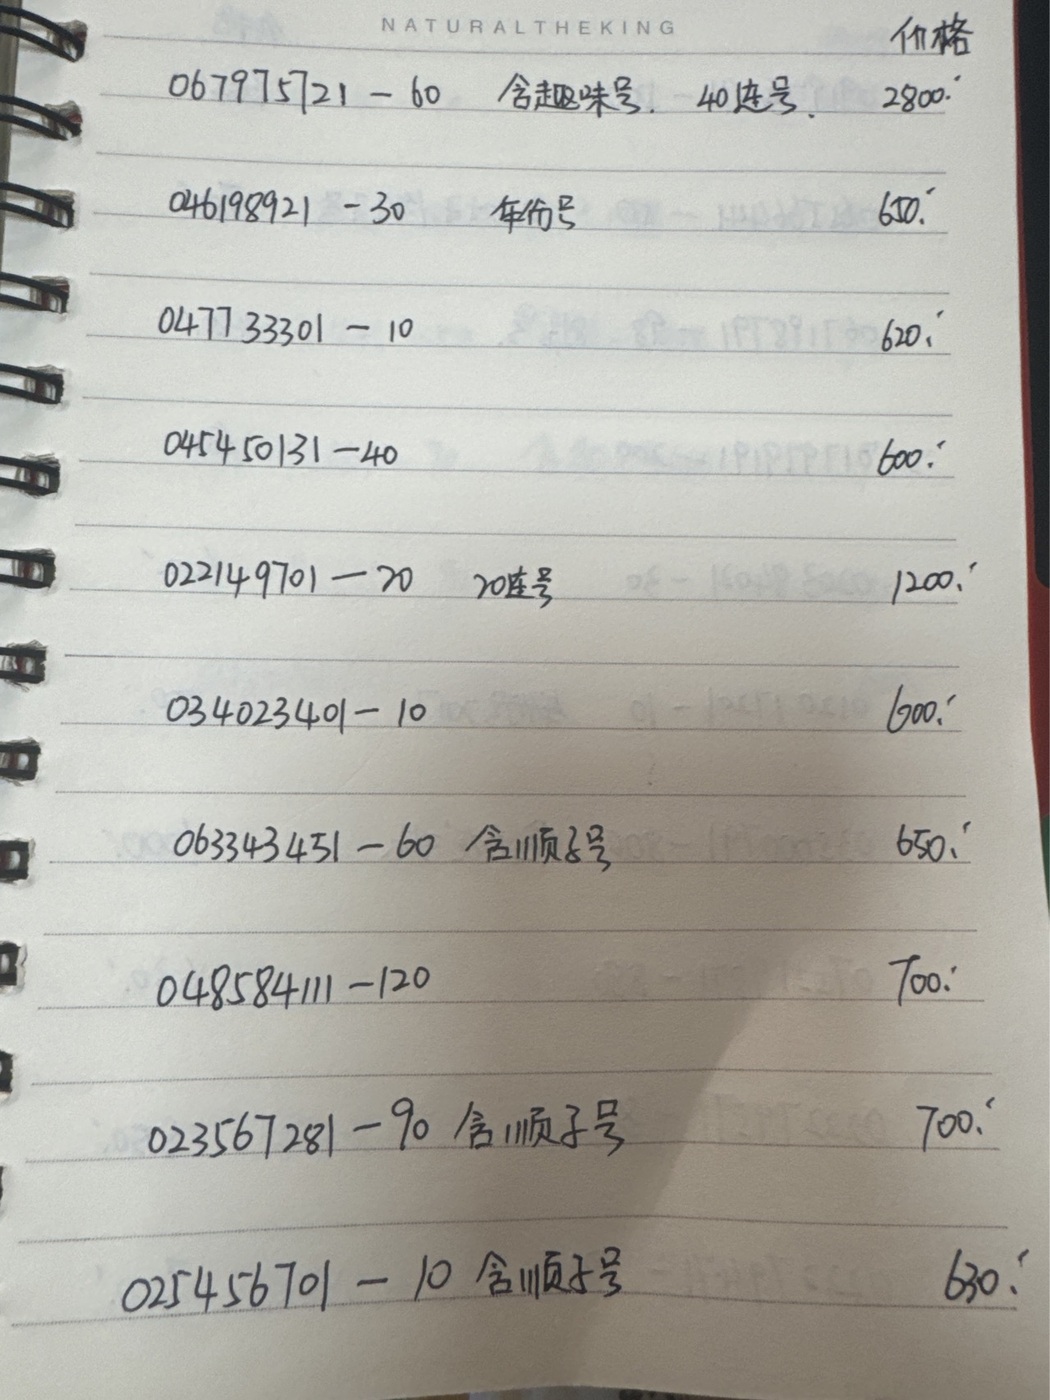 NATURALTHEKING
价格
067975721 - 60 含趣味号. 40连号. 2800.
046198921 - 30 年份号 650.
047733301 - 10 620.
045450131 - 40 600.
022149701 - 20 20连号 1200.
034023401 - 10 600.
063343451 - 60 含顺子号 650.
048584111 - 120 700.
023567281 - 90 含顺子号 700.
025456701 - 10 含顺子号 630.